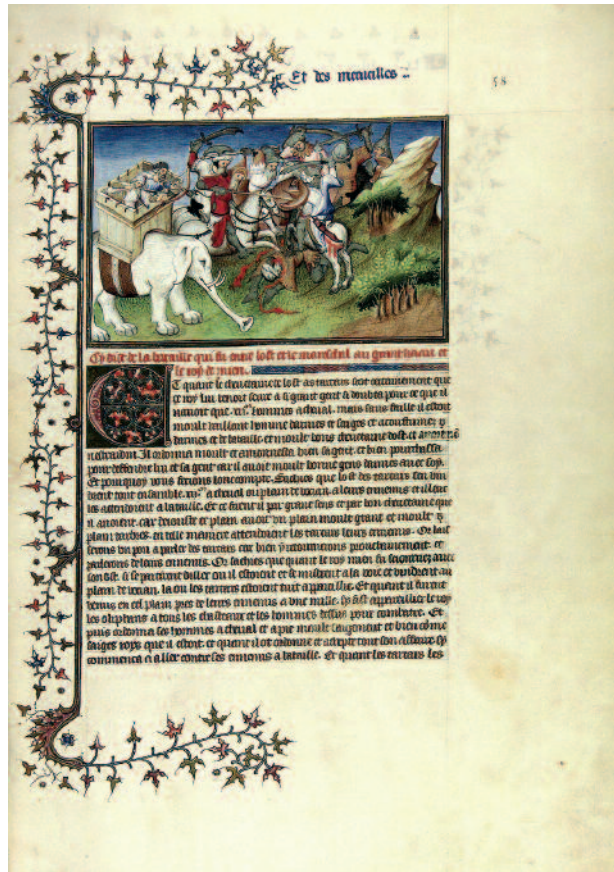 Et des merveilles
58
Cy dist de la bataille qui fu entre lost et le mareschal au grant kaan et
le roy de mien
Et quant le chevetaine de lost as tatars sot certainement que
ce roy lui venoit seure a si grant gent si doubta pour ce que il
navoit que .xii.m hommes a cheval. mais sans faille il estoit
moult vaillant homme darmes et saiges et acoustumez
darmes et de bataille. et moult bons chevetaine dost. et
Il ordonna moult et amonnesta bien sa gent. et bien pourchassa
pour deffendre lui et sa gent car il avoit moult bonne gens darmes avec soy.
Et pourquoy vous feroions lonc compte. Sachiez que lost des tatars sen vin
drent tout ensamble .xii.m a cheval ou plain de vocian. a leurs ennemis et illeuc
les attendoient a la bataille. Et ce firent il par grant sens et par bon chevetaine que
il avoient. car de jouste ce plain avoit un plain moult grant et moult
plain darbres. en telle maniere attendoient les tatars leurs ennemis. Or lais
serons un pou a parler des tatars car bien y retournerons prouchainement. et
parlerons de leurs ennemis. Or sachiez que quant le roy mien fu seiornez avec
son ost. si se partirent dilec ou il estoient et se mistrent a la voie et vindrent au
plain de vocian. la ou les tatars estoient tuit appareillie. Et quant il furent
venus en cel plain pres de leurs ennemis a une mille. sy fist appareillier le roy
les oliphans a tous les chasteaux et les hommes dessus pour combatre. Et
puis ordonna ses hommes a cheval et a pie moult saigement et bien comme
saiges roys que il estoit. et quant il ot ordonne et acepte tout son affaire sy
commenca a aller contre ses ennemis a bataille. Et quant les tatars les